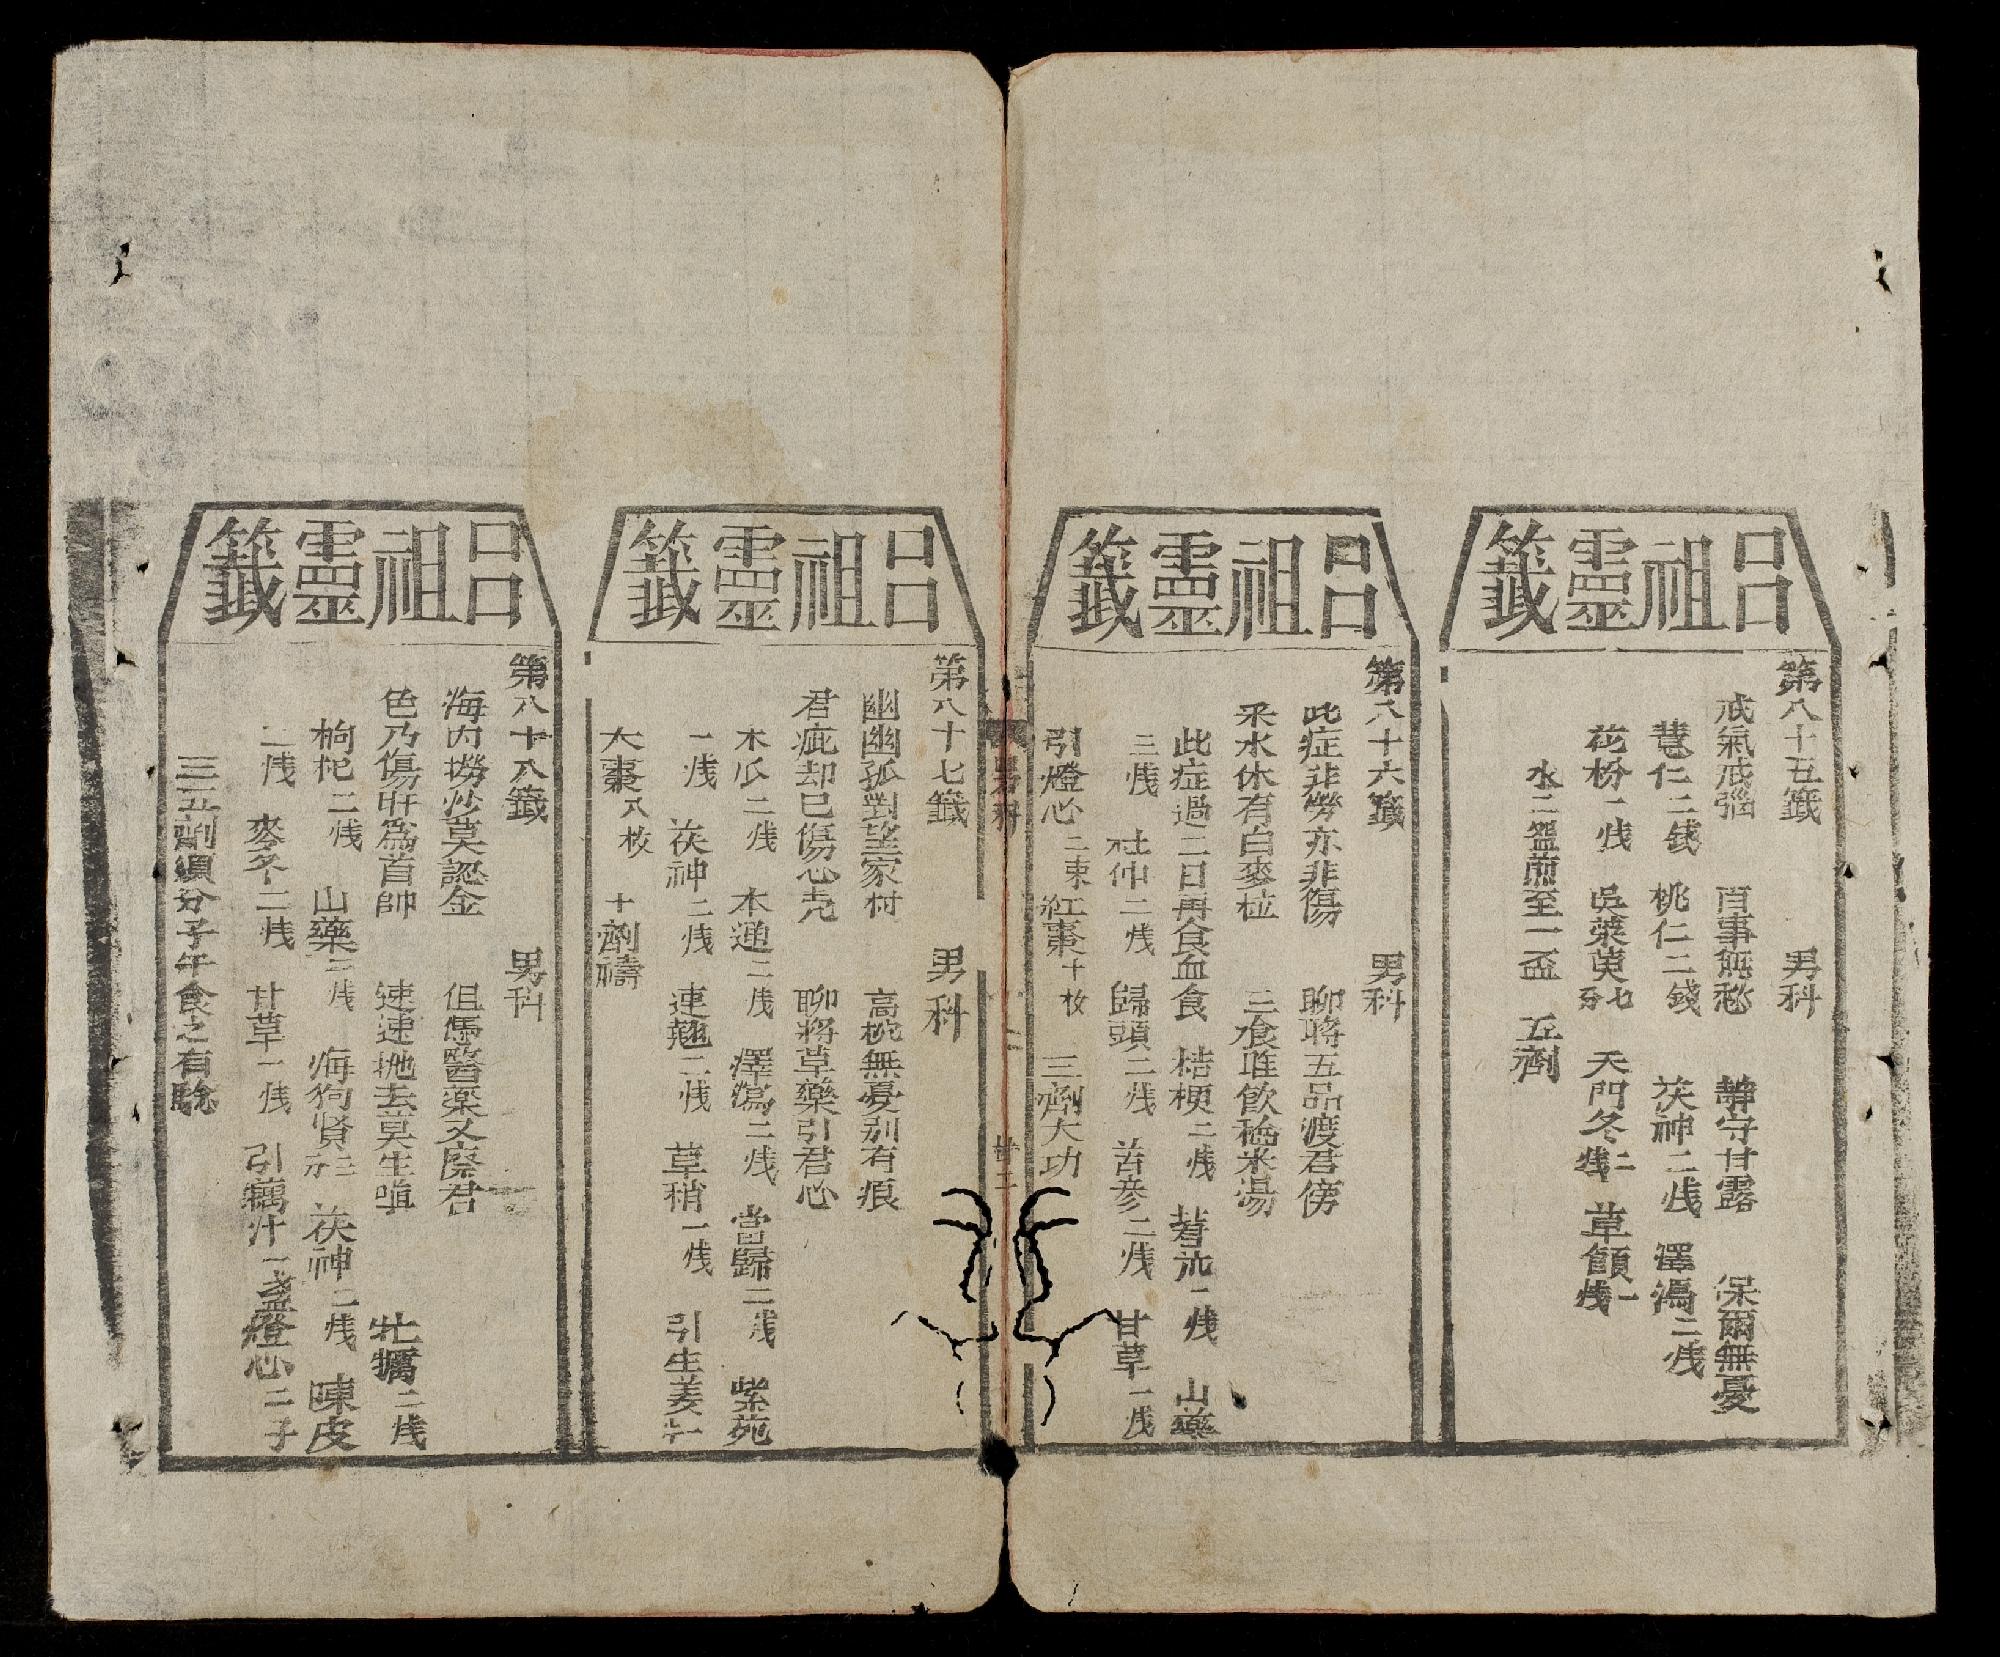 呂祖靈籤
第八十五籤 男科
戒氣戒惱 百事無愁 靜守甘露 保爾無憂
慧仁二錢 桃仁二錢 茯神二戋 澤瀉二戋
花粉一戋 吳萊萸七分 天門冬二戋 草頭一戋
水二盌煎至一盃 五劑
呂祖靈籤
第八十六籤 男科
此症非勞亦非傷 聊將五品渡君傍
釆水休有白麥粒 三食唯飲秈米湯
此症過二日再食血食 桔梗二戋 蓍朮一戋 山藥
三戋 杜仲二戋 歸頭二戋 首參二戋 甘草一戋
引燈心二束 紅棗十枚 三劑大功
男科
廿二
呂祖靈籤
第八十七籤 男科
幽幽孤對望家村 高枕無憂别有痕
君疵却已傷心壳 聊將草藥引君心
木瓜二戋 木通二戋 澤瀉二戋 當歸二戋 紫苑
一戋 茯神二戋 連翹二戋 草稍一戋 引生姜七
大棗八枚 十劑禱
呂祖靈籤
第八十八籤 男科
海內撈沙莫認金 但馮醫藥又療君
色乃傷肝為首帥 速速拋去莫生嗔 牡犡二戋
枸杞二戋 山藥二戋 海狗腎三 茯神二戋 陳皮
二戋 麥冬二戋 甘草一戋 引藕汁一盞燈心二子
三五劑須分子午食之有騐